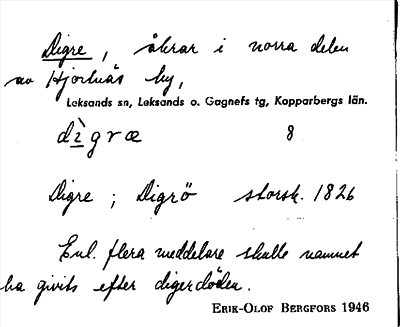 Digre, åkrar i norra delen
av Hjortnäs by,
Leksands sn, Leksands o. Gagnefs tg, Kopparbergs län.
dì̱græ 8
Digre ; Digrö storsk. 1826
Enl. flera meddelare skulle namnet
ha givits efter digerdöden.
ERIK-OLOF BERGFORS 1946